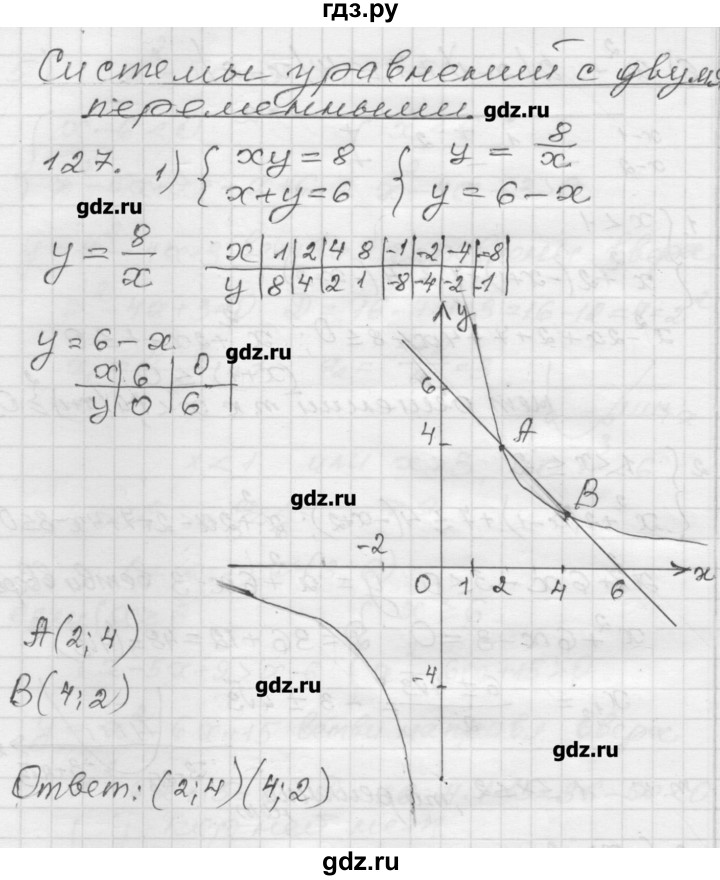 гдз.ру
Системы уравнений с двумя
переменными.
gdz.ru
127. 1) { xy = 8 { y = 8/x
x+y=6 y = 6 - x
gdz.ru
y = 8/x
x | 1 | 2 | 4 | 8 | -1 | -2 | -4 | -8
y | 8 | 4 | 2 | 1 | -8 | -4 | -2 | -1
y = 6 - x
gdz.ru
x | 6 | 0
y | 0 | 6
y
6
4
A
B
gdz.ru
-2
0 1 2 4 6 x
-4
A(2;4)
B(4;2)
gdz.ru
gdz.ru
Ответ: (2;4)(4;2)
gdz.ru